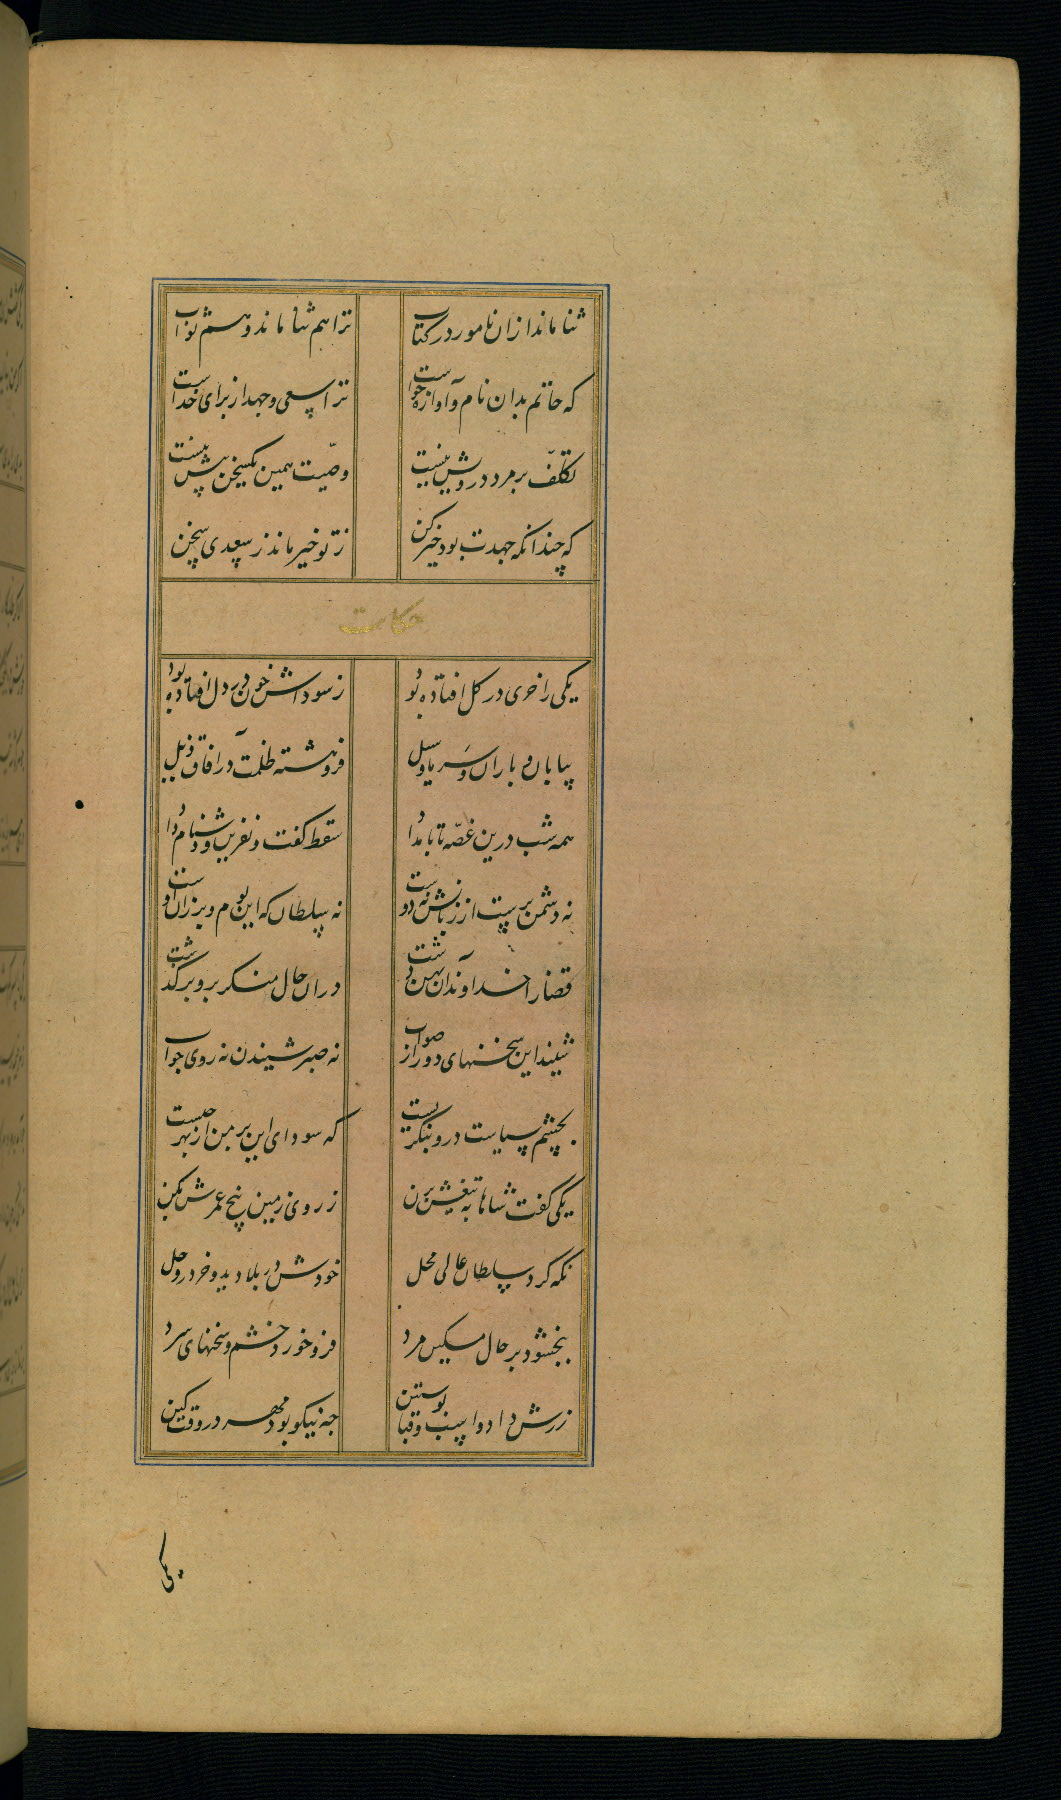 ثنا ماند ازان نامور در کتاب ترا هم ثنا ماند و هم ثواب
که حاتم بدان نام و آوازه خواست ترا سعی و جهد از برای خداست
تکلّف بر مرد درویش نیست وصیّت همین یکسخن بیش نیست
که چندانکه جهدت بود خیر کن ز تو خیر ماند ز سعدی سخن
حکایت
یکی را خری در گل افتاده بود ز سوداش خون در دل افتاده بود
بیابان و باران و سرما و سیل فروهشته ظلمت در آفاق ذیل
همه شب درین غصّه تا بامداد سقط گفت و نفرین و دشنام داد
نه دشمن برست از زبانش نه دوست نه سلطان که این بوم و برزان اوست
قضا را خداوند آن پهن دشت دران حال منکر برو برگذشت
شنید این سخنهای دور از صواب نه صبر شنیدن نه روی جواب
بچشم سیاست درو بنگریست که سودای این بر من از بهر چیست
یکی گفت شاها به تیغش بزن ز روی زمین بیخ عمرش بکن
نگه کرد سلطان عالی محل خودش در بلا دید و خر در وحل
ببخشود بر حال مسکین مرد فرو خورد خشم و سخنهای سرد
زرش داد و اسب و قبا پوستین چه نیکو بود مهر در وقت کین
یکی